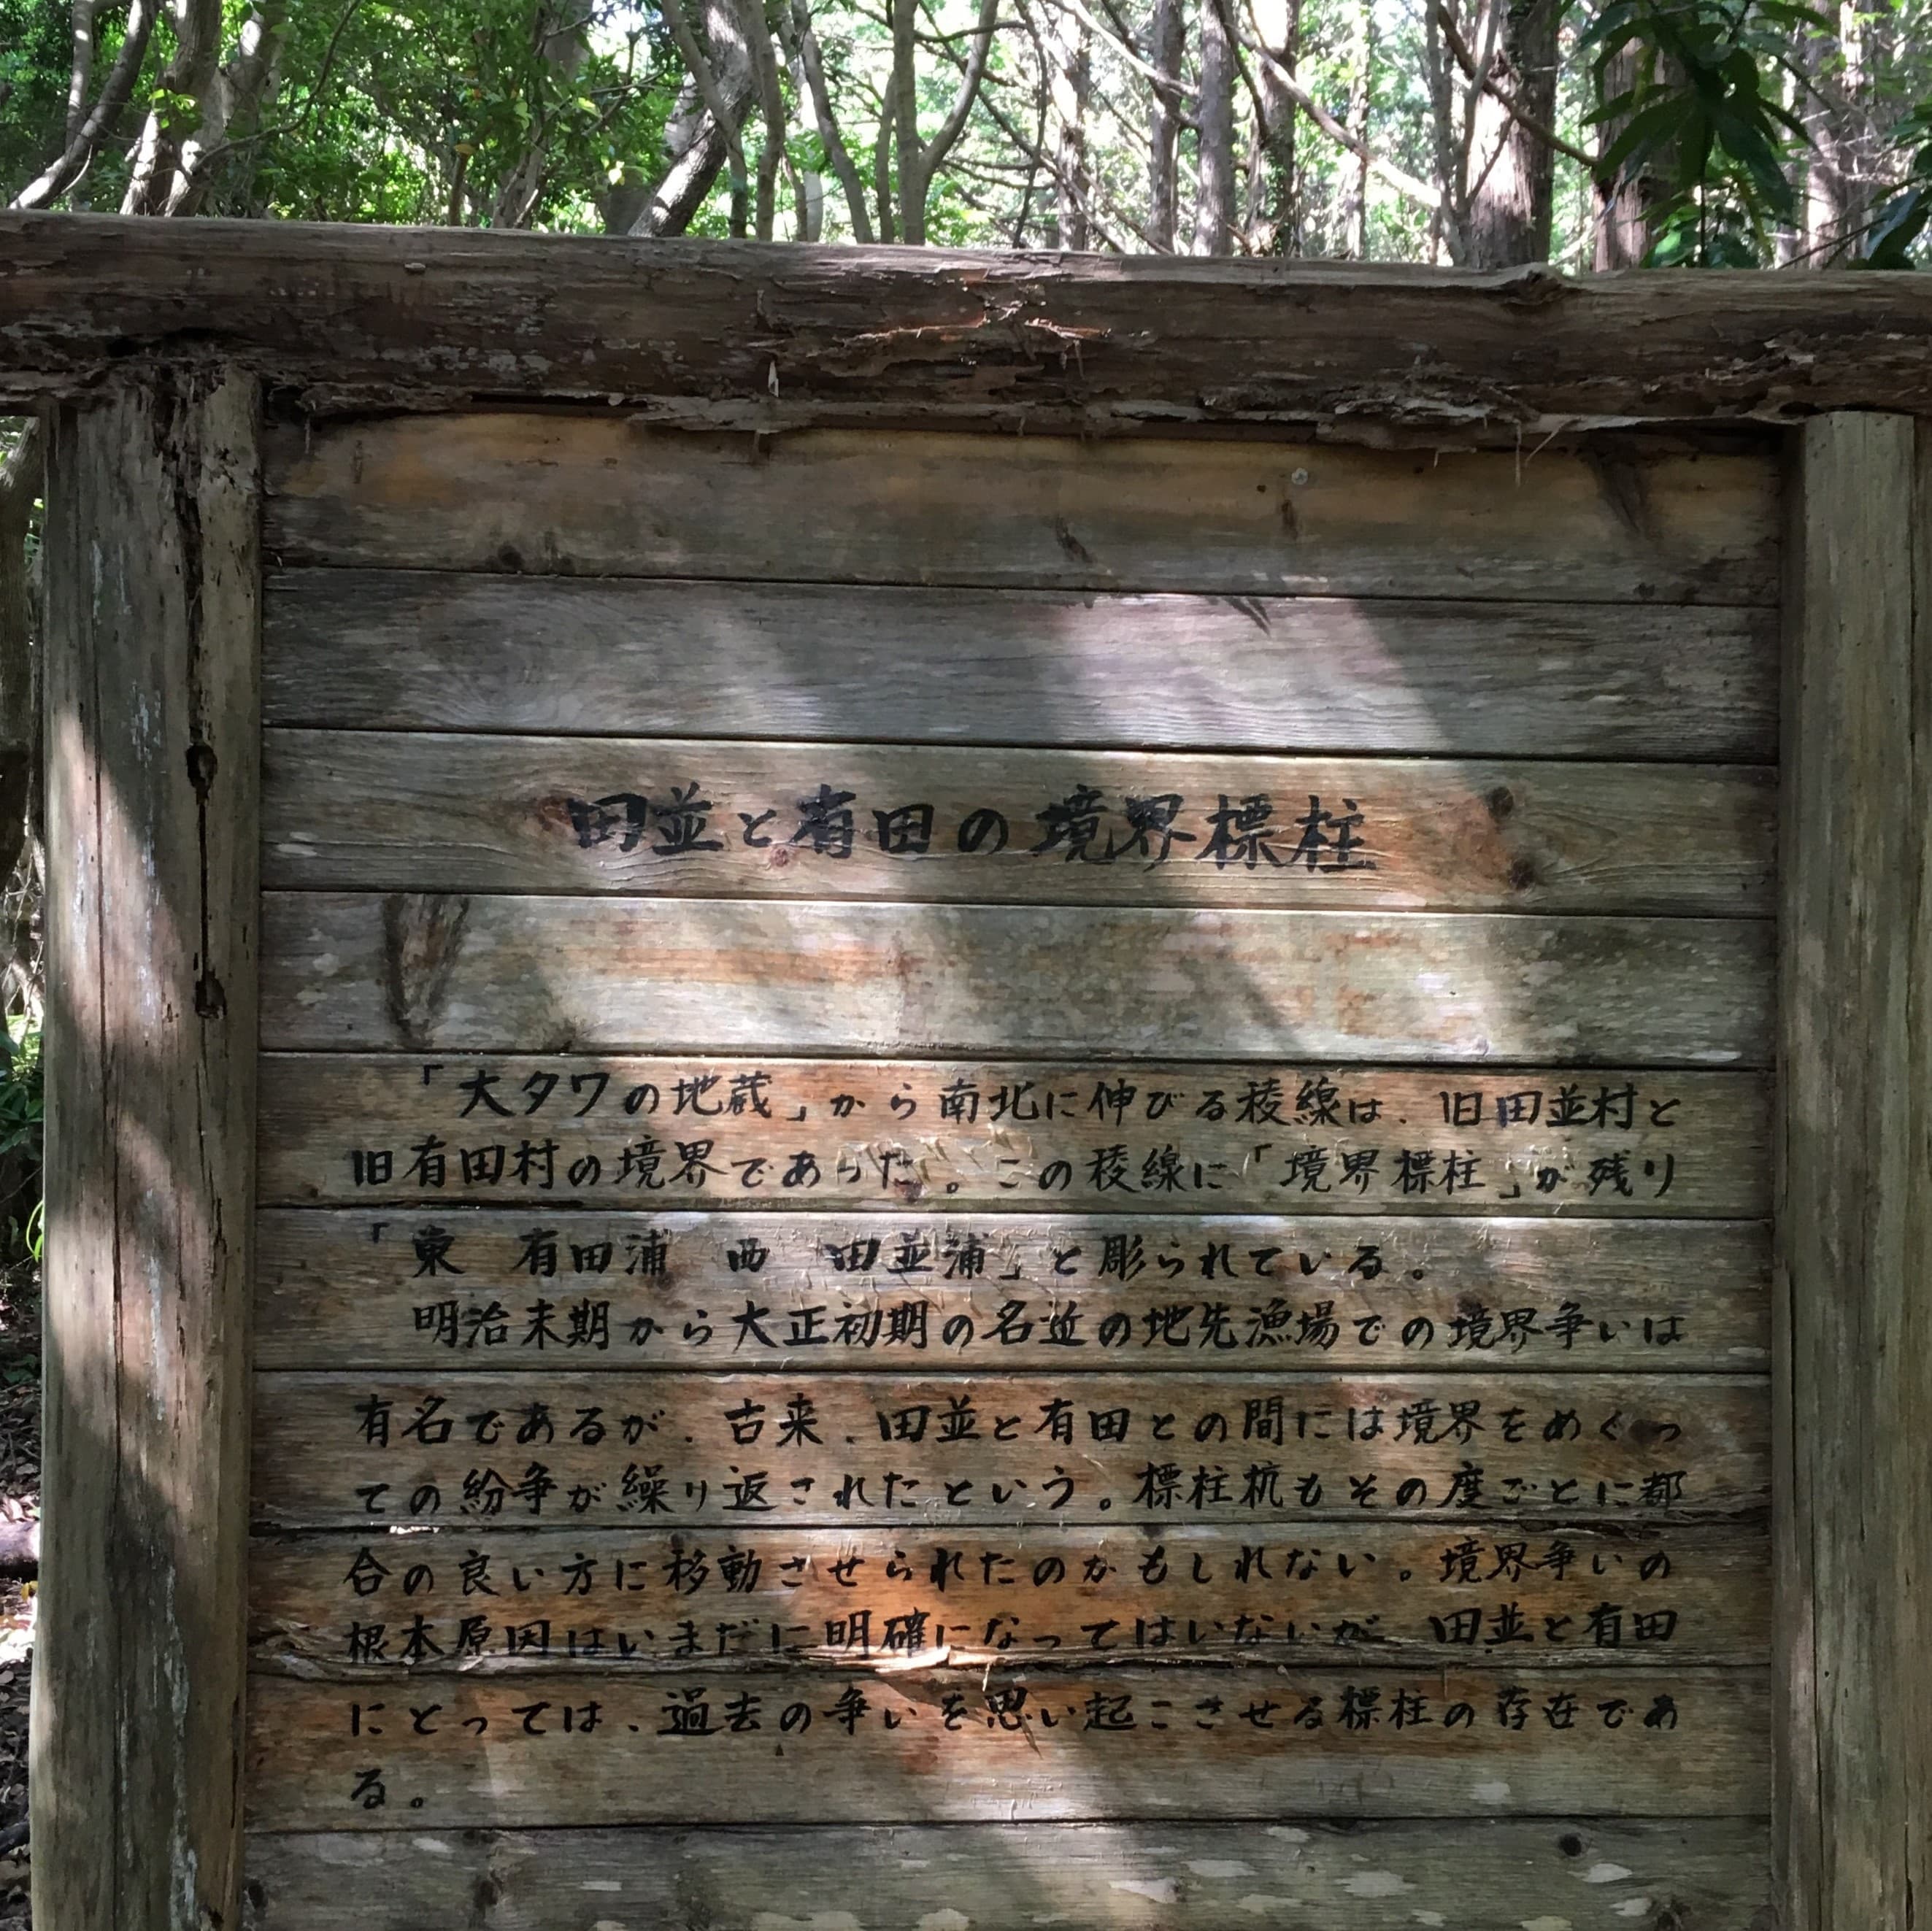 田並と有田の境界標柱
「大タワの地蔵」から南北に伸びる稜線は、旧田並村と
旧有田村の境界であった。この稜線に「境界標柱」が残り
「東　有田浦　西　田並浦」と彫られている。
明治末期から大正初期の名近の地先漁場での境界争いは
有名であるが、古来、田並と有田との間には境界をめぐっ
ての紛争が繰り返されたという。標柱杭もその度ごとに都
合の良い方に移動させられたのかもしれない。境界争いの
根本原因はいまだに明確になってはいないが、田並と有田
にとっては、過去の争いを思い起こさせる標柱の存在であ
る。